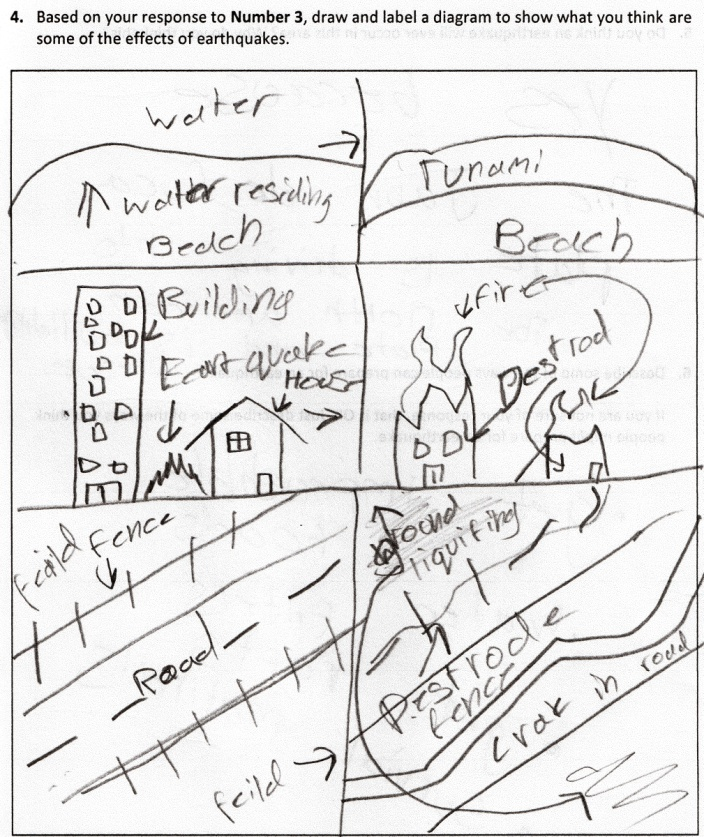 4. Based on your response to Number 3, draw and label a diagram to show what you think are
some of the effects of earthquakes.
water
water residing
Beach
Tunami
Beach
Building
Eartquake
House
fire
Destrod
feild fence
Road
feild
Ground
liquifing
Destrode
fence
crak in road